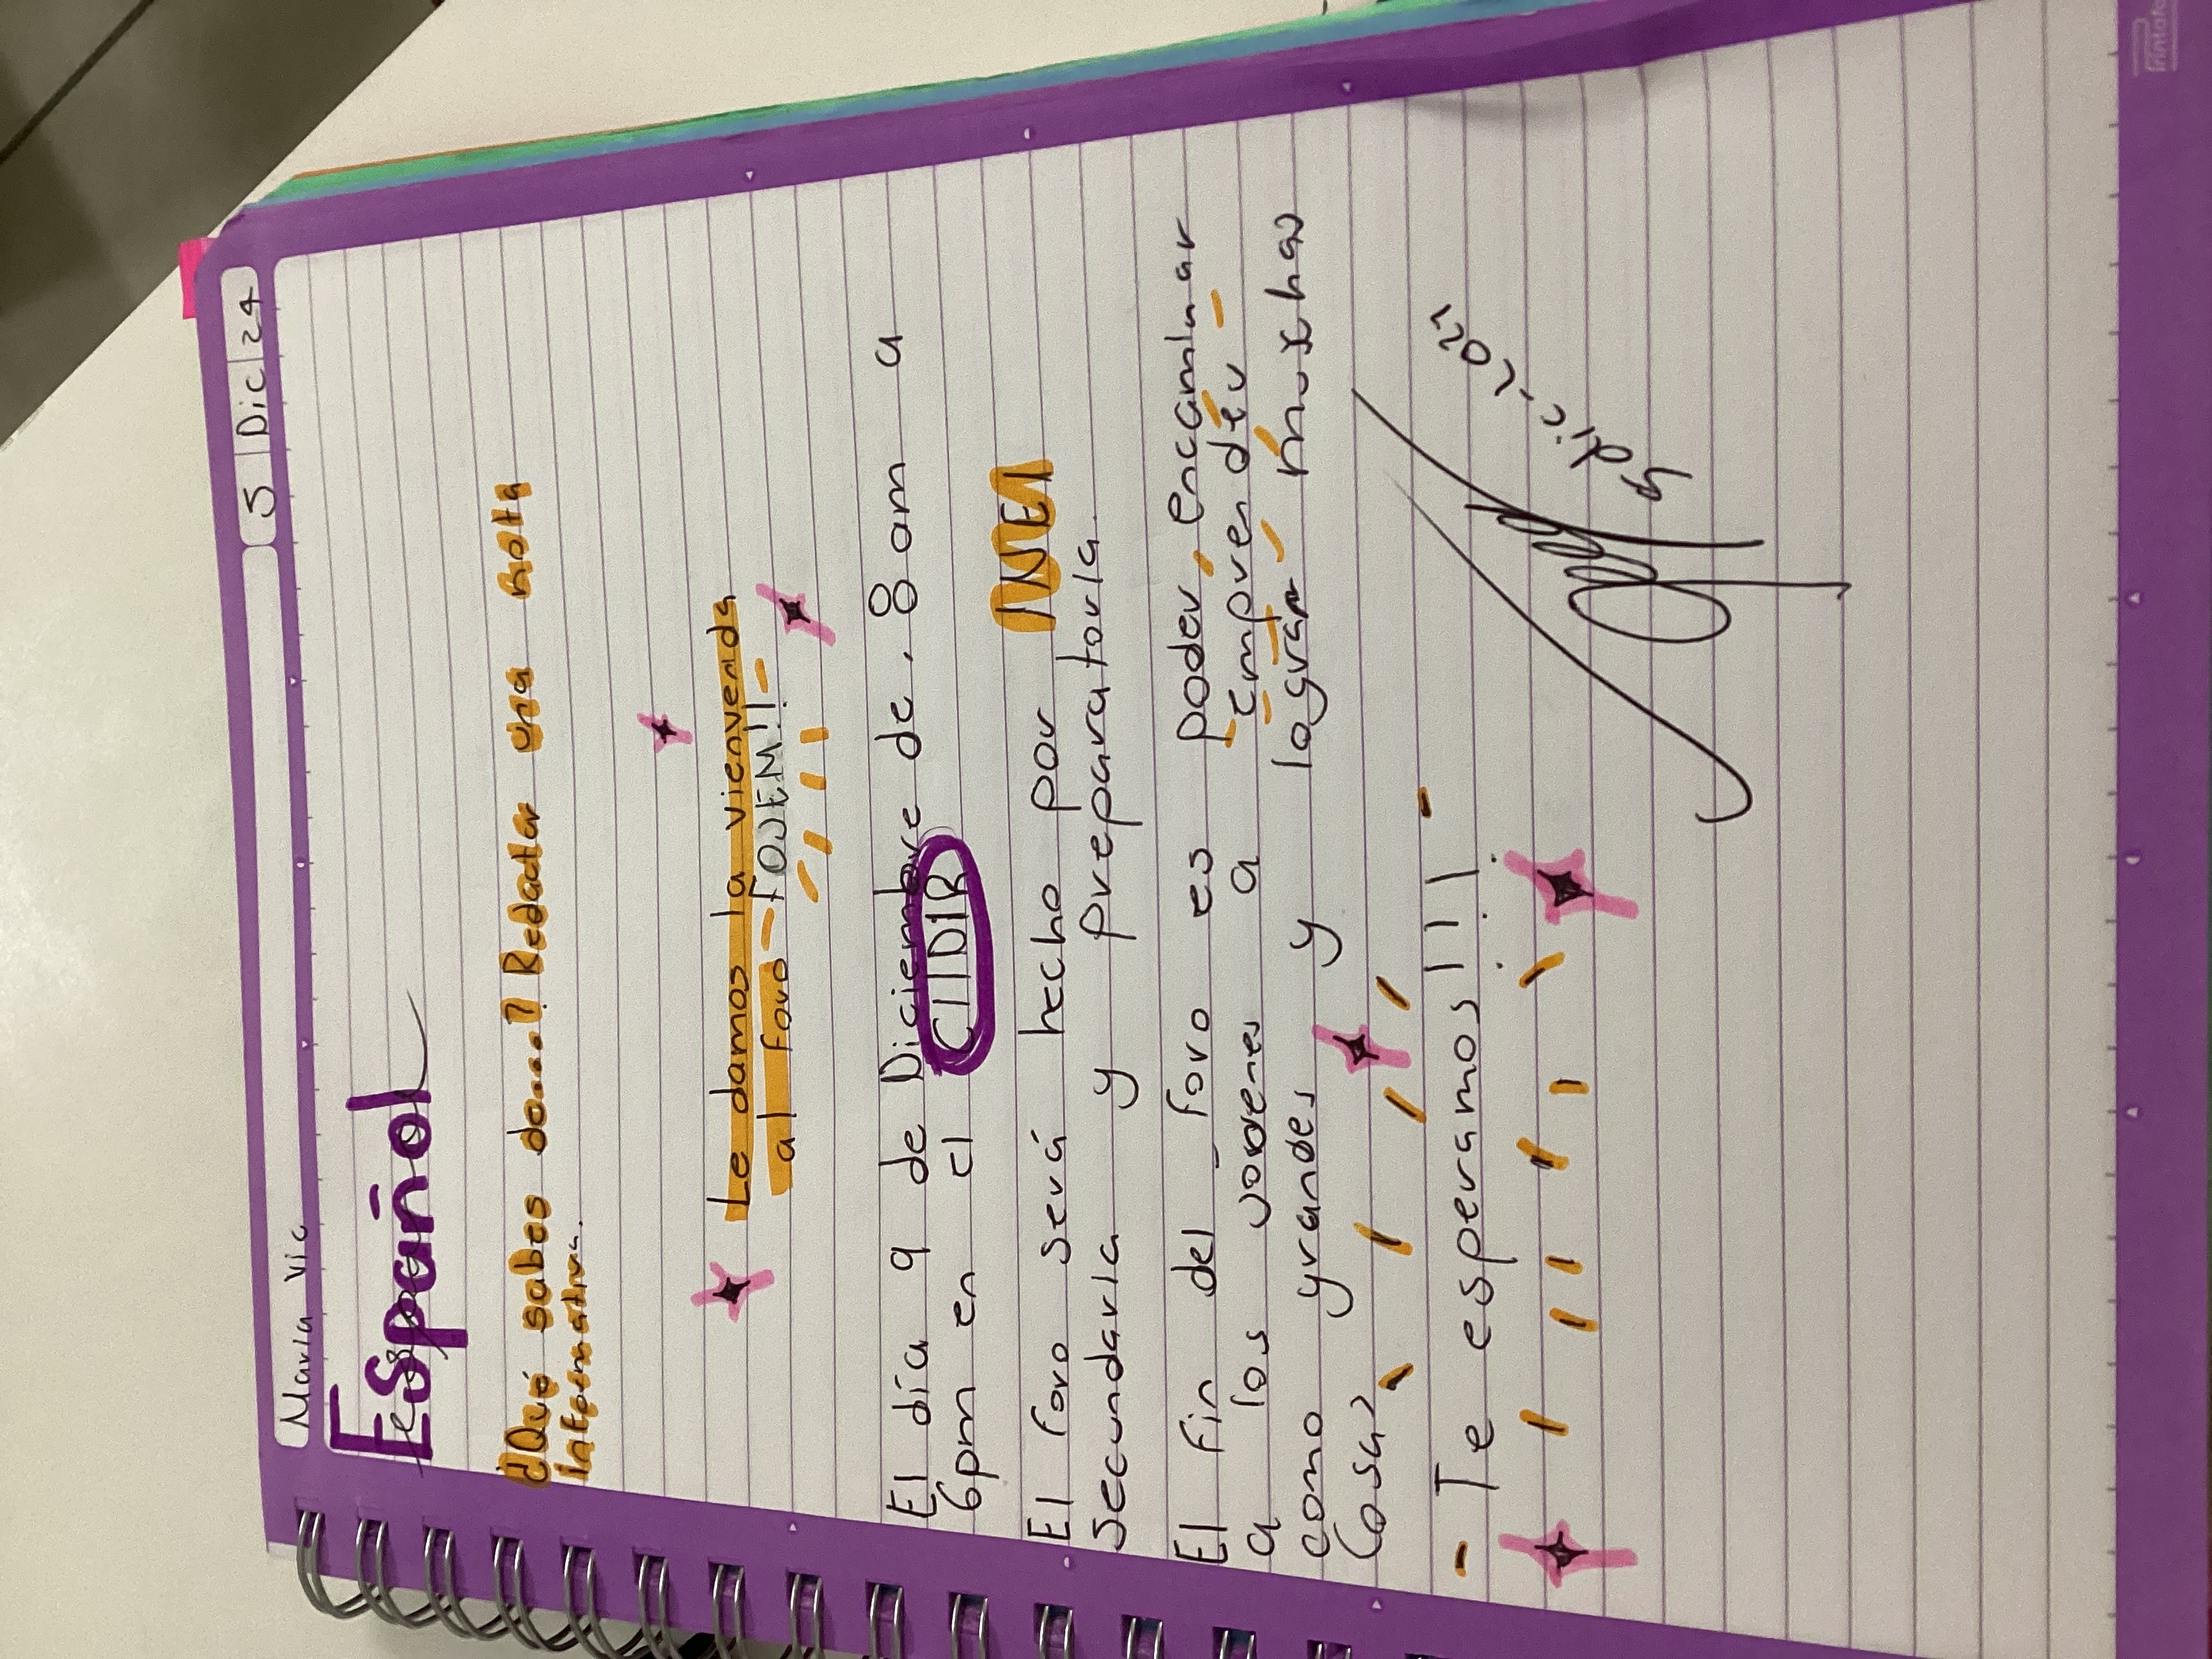 María Vic
5 Dic 24
Español
¿Qué sabes de....? Redactar una nota
informativa.
Le damos la vienvenda
al foro FOJEM!!
El día 9 de Diciembre de 8 am a
6pm en el CIIDIR
El foro será hecho por INEI
Secundaria y preparatoria.
El fin del foro es poder encaminar
a los jovenes a emprender
como grandes y lograr muchas
Cosas
- Te esperamos!!! -
4 dic
Printaform